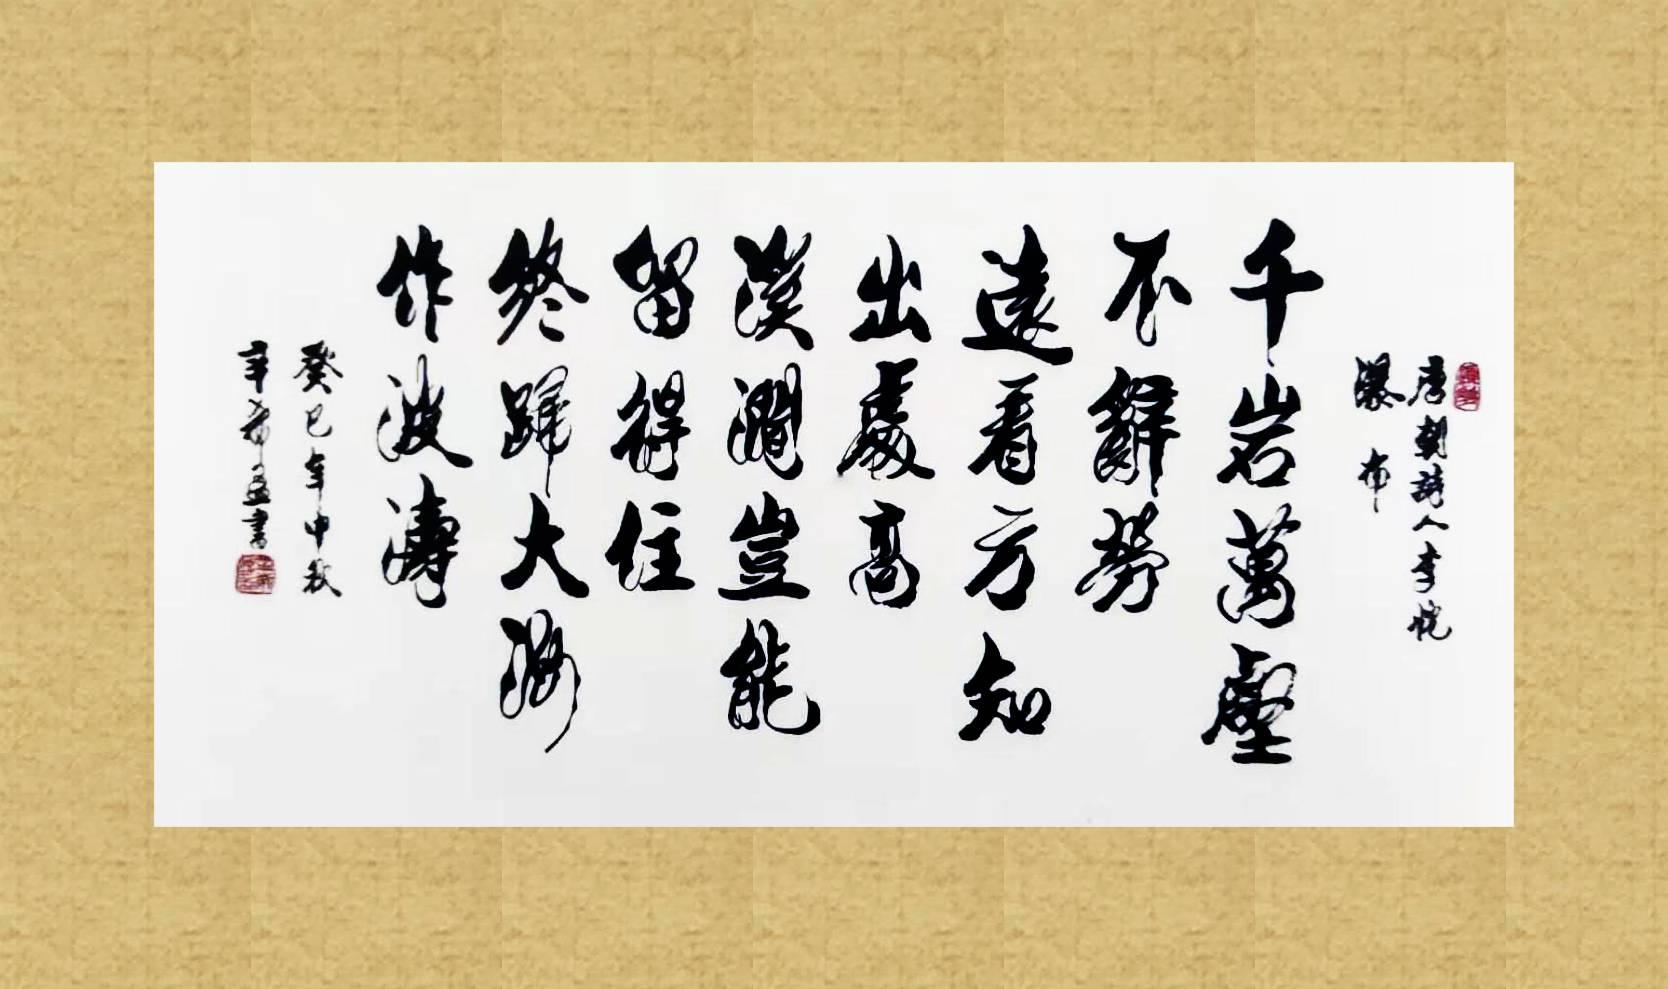 唐朝詩人李忱
瀑布
千岩萬壑
不辭勞
遠看方知
出處高
溪澗豈能
留得住
終歸大海
作波濤
癸巳年中秋
辛希孟書